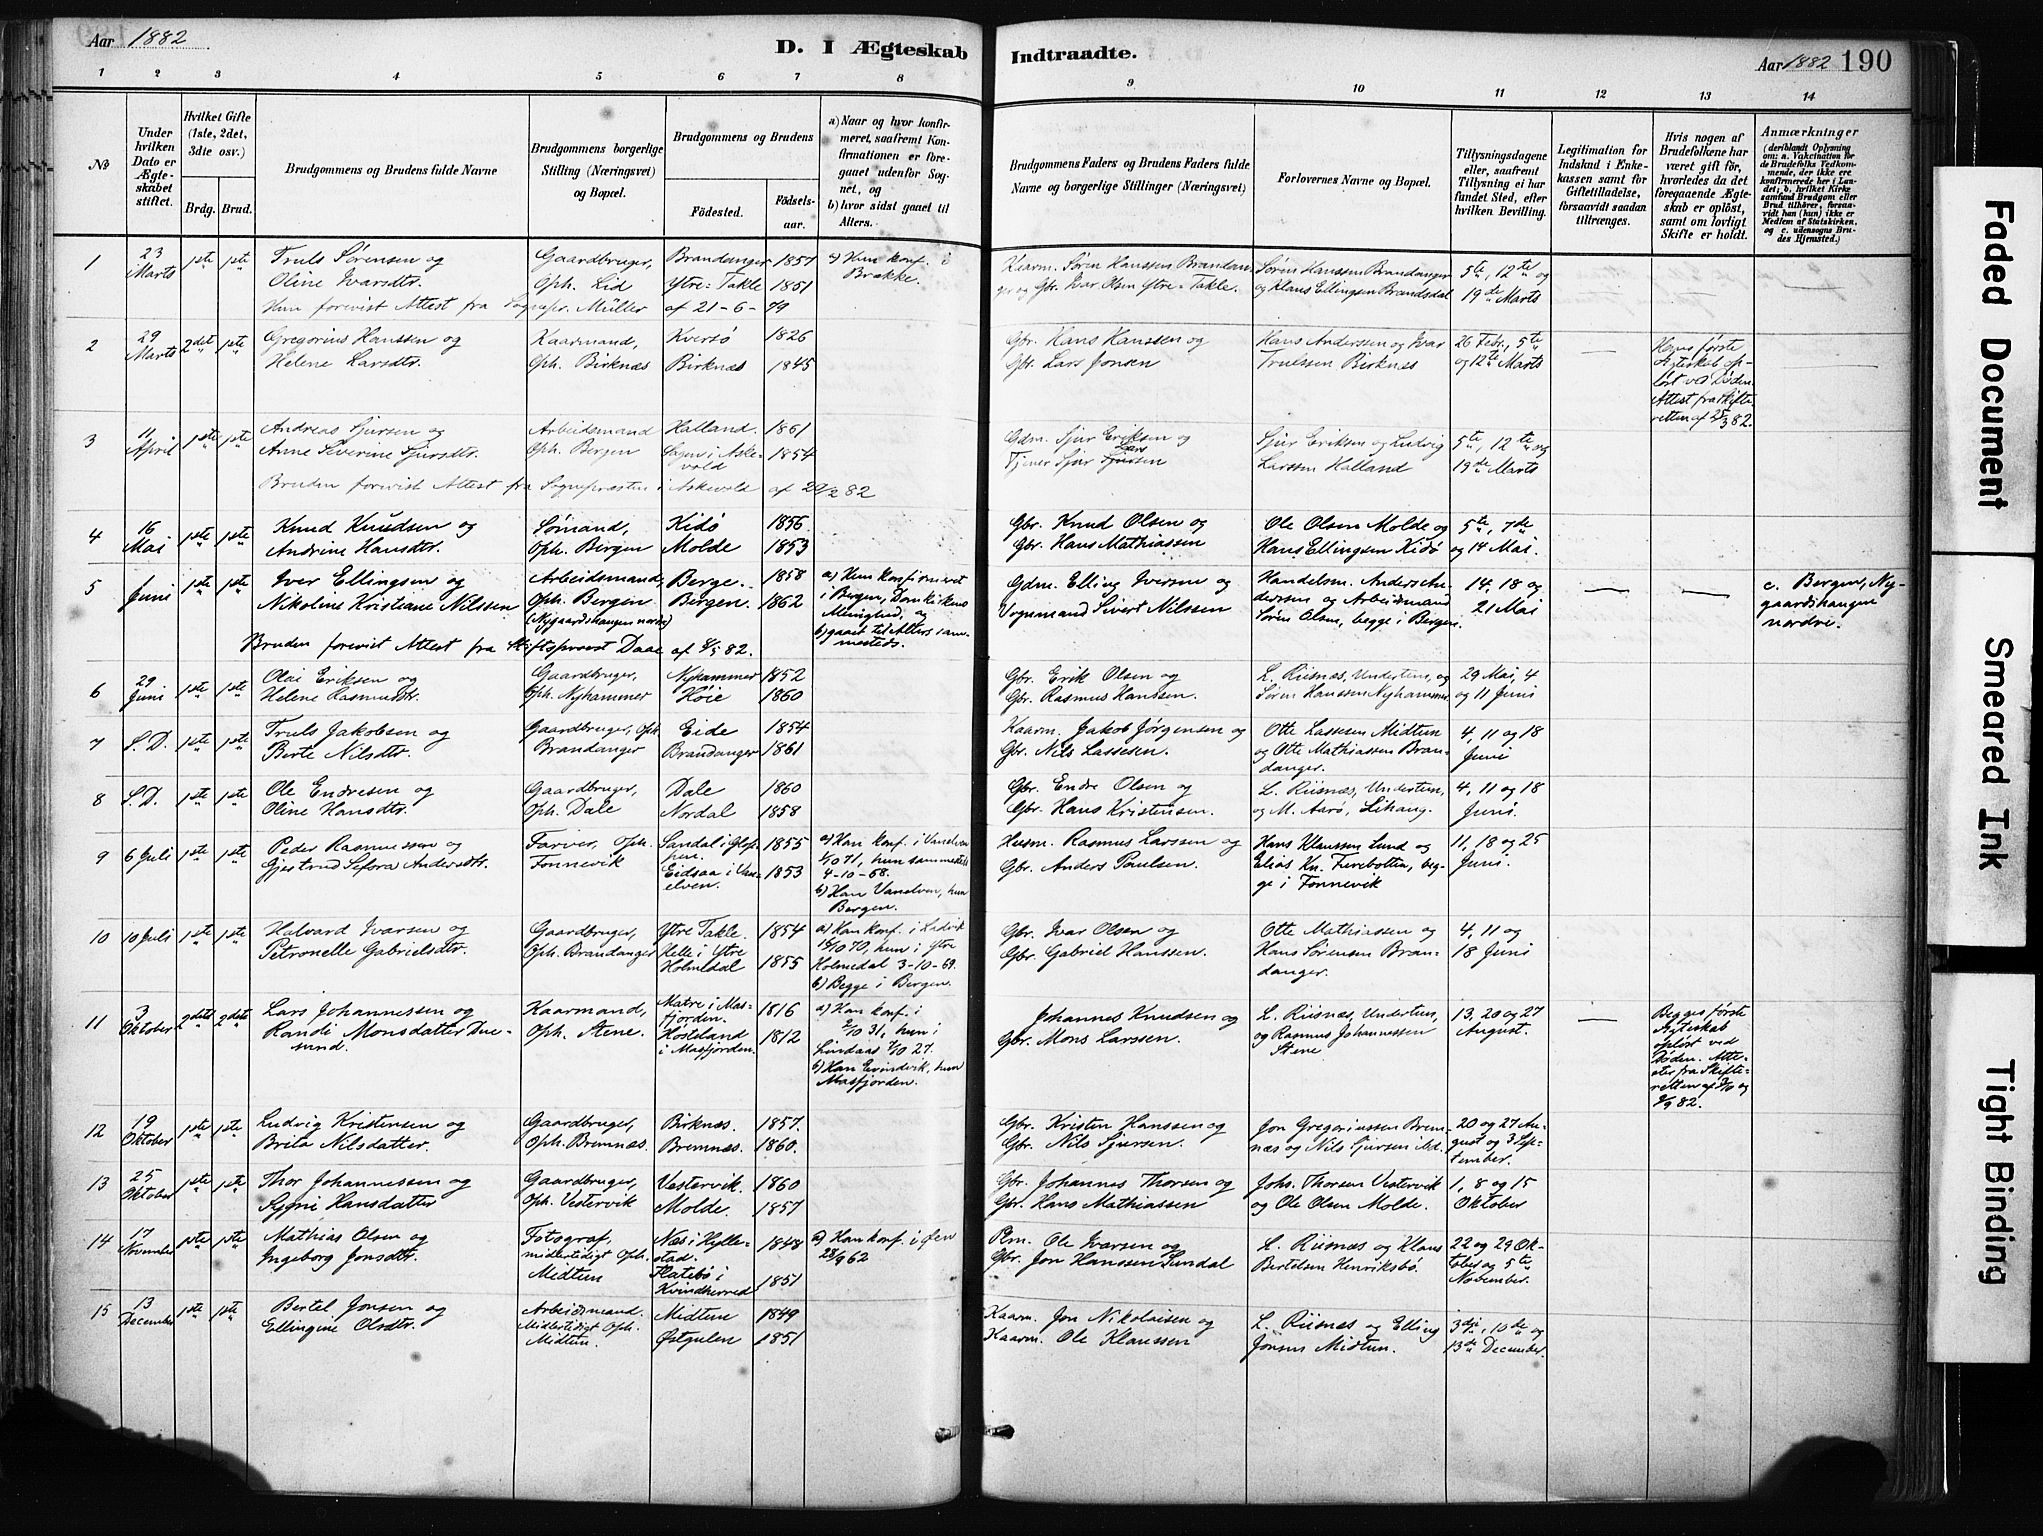 Aar 1882
D. I Ægteskab Indtraadte.
Aar 1882 190
1 2 3 4 5 6 7 8 9 10 11 12 13 14
No
Under hvilken Dato er Ægteskabet stiftet.
Hvilket Gifte (1ste, 2det, 3die osv.)
Brdg. Brud.
Brudgommens og Brudens fulde Navne
Brudgommens borgerlige Stilling (Næringsvei) og Bopæl.
Brudgommens og Brudens
Fødested.
Fødselsaar.
a) Naar og hvor konfirmeret, saafremt Konfirmationen er foregaaet udenfor Sognet, og
b) hvor sidst gaaet til Alters.
Brudgommens Faders og Brudens Faders fulde Navne og borgerlige Stillinger (Næringsvei)
Forlovernes Navne og Bopæl.
Tillysningsdagene eller, saafremt Tillysning ei har fundet Sted, efter hvilken Bevilling.
Legitimation for Indskud i Enkekassen samt for Giftetilladelse, forsaavidt saadan tiltrænges.
Hvis nogen af Brudefolkene har været gift før, hvorledes da det foregaaende Ægteskab er opløst, samt om lovligt Skifte er holdt.
Anmærkninger
(deriblandt Oplysning om: a. Vakcination for de Brudefolks Vedkommende, der ikke ere konfirmerede her i Landet; b. hvilket Kirkesamfund Brudgom eller Brud tilhører, forsaavidt han (hun) ikke er Medlem af Statskirken, og c. udensogns Brudes Hjemsted.)
1 23 Marts 1ste 1ste Truls Sørensen og Gaardbruger, Brandanger 1857 a) Hun konf. i
Oline Ivarsdtr. Oph. Lid Ytre-Takle 1851 Brække.
Hun forevist Attest fra Sognepr. Müller af 21-6-79
Kaarm. Søren Hanssen Brandanger og Gbr. Ivar Olsen Ytre-Takle.
Søren Hanssen Brandanger og Klaus Ellingsen Brandsdal
5te, 12te og 19de Marts
2 29 Marts 2det 1ste Gregorius Hanssen og Kaarmand, Kversø 1826
Helene Larsdtr. Oph. Birknæs Birknæs 1845
Gbr. Hans Hanssen og Gbr. Lars Jonsen
Hans Anderssen og Ivar Truelssen Birknæs
26 Febr., 5te og 12te Marts
Hans første Ægteskab opløst ved Døden. Attest fra Skifteretten af 25/3 82.
3 11 April 1ste 1ste Andreas Sjursen og Arbeidsmand Halland. 1861
Anne Severine Sjursdtr. Oph. Bergen i Askevold 1854
Bruden forevist Attest fra Sognepræsten i Askevold af 20/2 82
Gdm. Sjur Eriksen og
Tjener Sjur Sjursen
Lars
Sjur Eriksen og Ludvig Larssen Halland
5te, 12te og 19de Marts
4 16 Mai 1ste 1ste Knud Knudsen og Sømand, Kidø 1856
Andrine Hansdtr. Oph. Bergen Molde 1853
Gbr. Knud Olsen og Gbr. Hans Mathiassen
Ole Olsen Molde og Hans Ellingsen Kidø
5te, 7de og 14 Mai.
5 Juni 1ste 1ste Iver Ellingsen og Arbeidsmand, Berge. 1858 a) Hun konfirmeret
Nikoline Kristiane Nilssen Oph. Bergen Bergen. 1862 i Bergen, Domkirkens
(Nygaardshangen nordre) Menighed, og
Bruden forevist Attest fra Stiftsprovst Daae af 6/5 82. b) gaaet til Alters sammesteds.
Gdm. Elling Iversen og Vognmand Sivert Nilssen
Handelsm. Anders Anderssen og Arbeidsmand Søren Olsen, begge i Bergen.
14, 18 og 21 Mai
c. Bergen, Nygaardshangen nordre.
6 29 Juni 1ste 1ste Olai Eriksen og Gaardbruger, Nyhammer 1852
Helene Rasmusdtr. Oph. Nyhammer Høie 1860
Gbr. Erik Olsen og Gbr. Rasmus Hanssen.
L. Riisnæs, Undertun, og Søren Hanssen Nyhammer
29 Mai, 4 og 11 Juni
7 S.D. 1ste 1ste Truls Jakobsen og Gaardbruger, Oph. Eide 1854
Berte Nilsdtr. Brandanger Brandanger 1861
Kaarm. Jakob Jørgensen og Gbr. Nils Lassesen.
Otte Lassesen Midtun og Otte Mathiassen Brandanger.
4, 11 og 18 Juni
8 S.D. 1ste 1ste Ole Endresen og Gaardbruger, Dale 1860
Oline Hansdtr. Oph. Dale Nordal 1858
Gbr. Endre Olsen og Gbr. Hans Kristensen.
L. Riisnæs, Undertun, og M. Aarø, Lihaug.
4, 11 og 18 Juni.
9 6 Juli 1ste 1ste Peder Rasmussen og Farver, Oph. Sandal i Gloppen. 1855 a) Han konf. i Vanelven
Gjertrud Sefora Andersdtr. Tonnevik Eidsaa i Vanelven. 1853 1/10 71, hun sammesteds 4-10-68.
b) Han Vanelven, hun Bergen.
Husm. Rasmus Larssen og Gbr. Anders Paulsen.
Hans Klaussen Lund og Elias Kn. Firebotten, begge i Tonnevik
11, 18 og 25 Juni.
10 10 Juli 1ste 1ste Halvard Ivarsen og Gaardbruger, Ytre Takle. 1854 a) Han konf. i Ladvik
Petronelle Gabrielsdtr. Oph. Brandanger Helle i Ytre Holmedal 1855 16/10 70, hun i Ytre Holmedal 3-10-69.
b) Begge i Bergen.
Gbr. Ivar Olsen og Gbr. Gabriel Hanssen.
Otte Mathiassen og Hans Sørensen Brandanger.
4, 11 og 18 Juni
11 3 Oktober 2det 2det Lars Johannessen og Kaarmand, Matre i Masfjorden. 1816 a) Han konf. i
Randi Monsdatter Duesund. Oph. Stene. Hosteland i Masfjorden. 1812 2/10 31, hun i Lindaas 7/10 27.
b) Han Evindvik, hun Masfjorden.
Johannes Knudsen og Gbr. Mons Larssen.
L. Riisnæs, Undertun, og Rasmus Johannessen Stene
13, 20 og 27 August.
Begges første Ægteskab opløst ved Døden. Attester fra Skifteretten af 3/10 og 9/9 82.
12 19 Oktober 1ste 1ste Ludvig Kristensen og Gaardbruger, Birknæs. 1857.
Brita Nilsdatter. Oph. Bremnæs. Bremnæs. 1860.
Gbr. Kristen Hanssen og Gbr. Nils Sjursen.
Jon Gregoriussen Bremnæs og Nils Sjursen ibd.
20 og 27 August og 3 September.
13 25 Oktober 1ste 1ste Thor Johannessen og Gaardbruger, Vestervik. 1860
Sygni Hansdatter Oph. Vestervik Molde. 1857
Gbr. Johannes Thorsen og Gbr. Hans Mathiassen
Johs. Thorsen Vestervik og Ole Olsen Molde.
1, 8 og 15 Oktober
14 17 November 1ste 1ste Mathias Olsen og Fotograf, Næs i Hyllestad. 1848 a) Han konf. i Øen
Ingeborg Jonsdtr. midlertidigt Oph. Midtun Flatebø i Kvindherred 1851 28/9 62
Plm. Ole Ivarsen og Gbr. Jon Hanssen Sundal
L. Riisnæs og Klaus Bertelsen Henriksbø.
22 og 29 Oktober og 5te November.
15 13 December 1ste 1ste Bertel Jonsen og Arbeidsmand. Midtun 1849
Ellingine Olsdtr. Midlertidigt Oph. Midtun. Østgulen 1851
Kaarm. Jon Nikolaisen og Kaarm. Ole Klaussen
L. Riisnæs og Elling Jonsen Midtun.
3die, 10de og 13de December.
Faded Document
Smeared Ink
Tight Binding